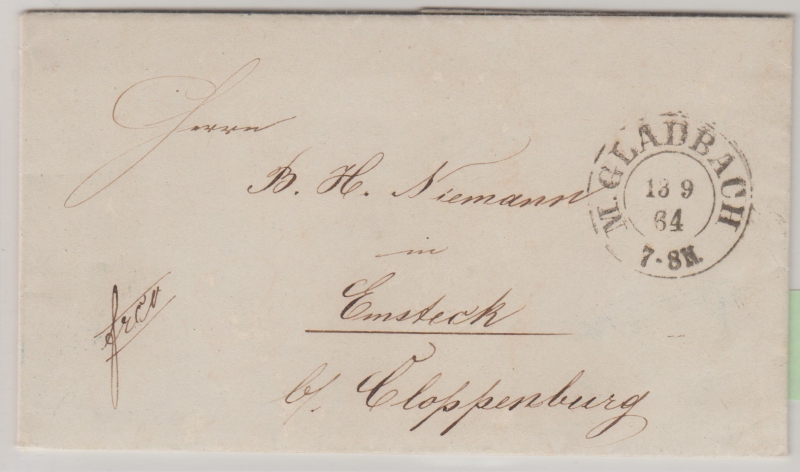 Herrn
B. H. Niemann
in
Emsteck
b/. Cloppenburg
frco
M. GLADBACH
13 9
64
7-8N.